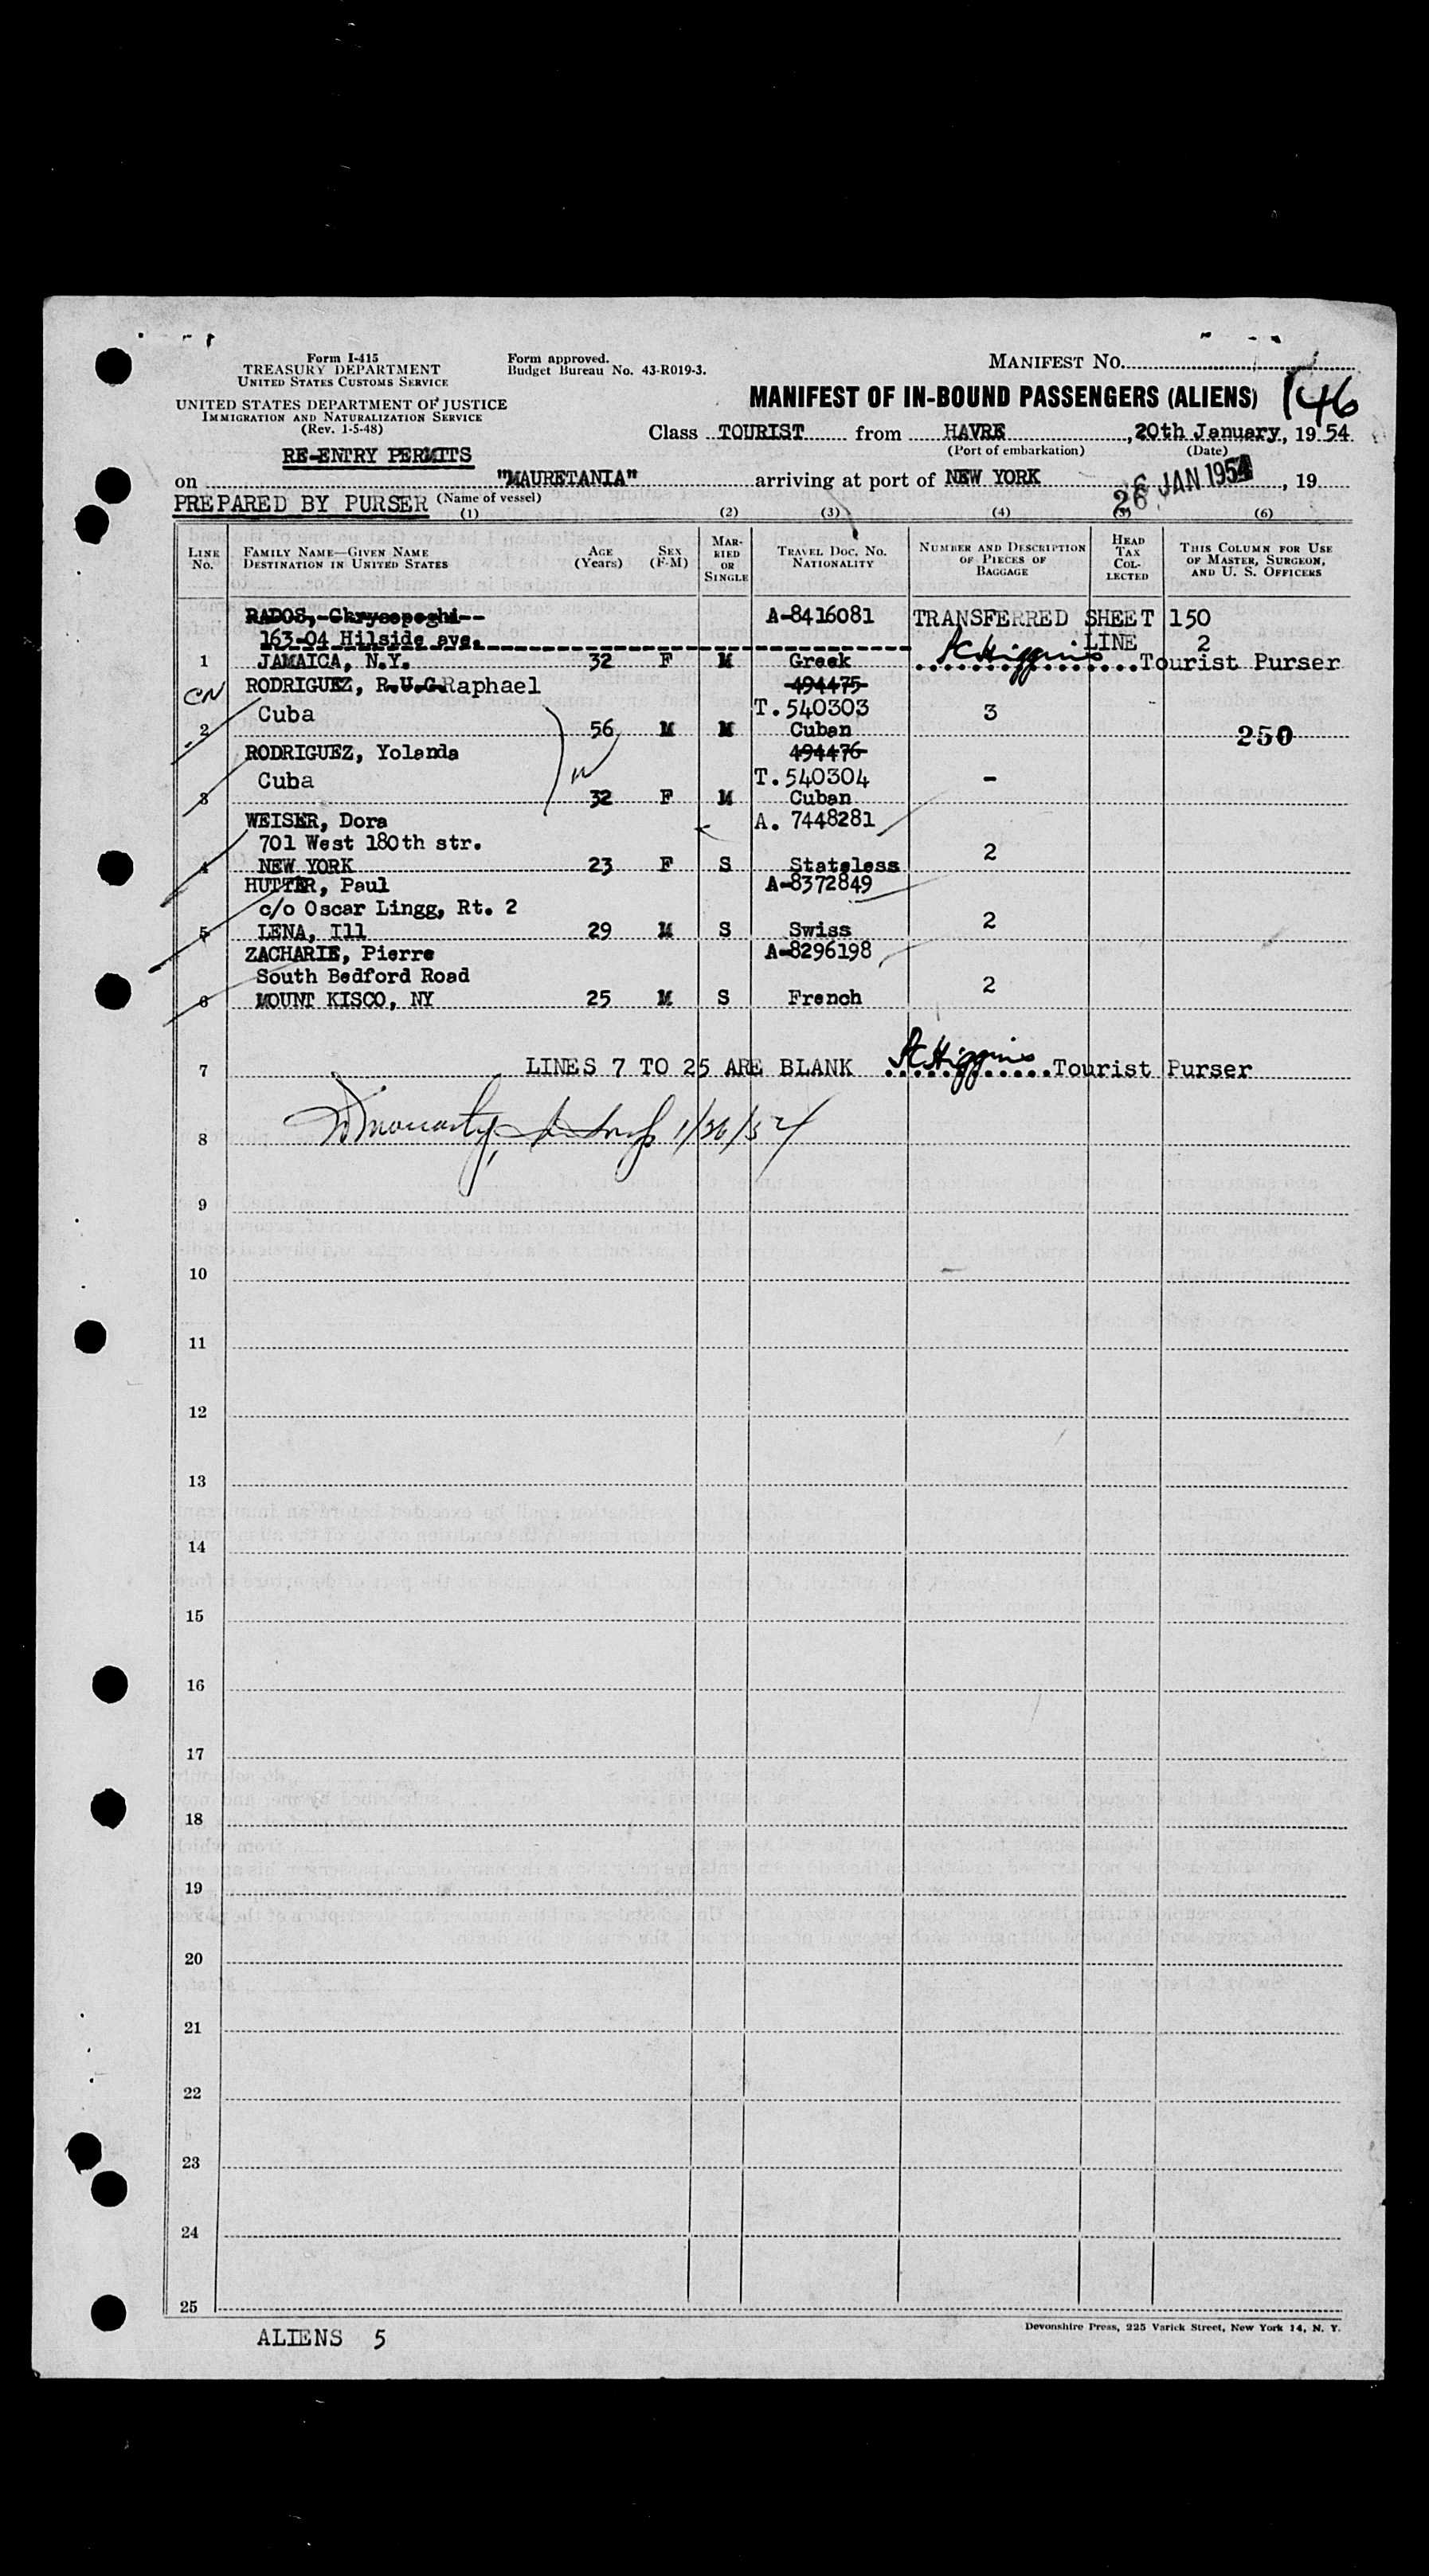 Form I-415
TREASURY DEPARTMENT
UNITED STATES CUSTOMS SERVICE
UNITED STATES DEPARTMENT OF JUSTICE
IMMIGRATION AND NATURALIZATION SERVICE
(Rev. 1-5-48)
Form approved.
Budget Bureau No. 43-R019-3.
MANIFEST NO.
MANIFEST OF IN-BOUND PASSENGERS (ALIENS) 146
Class TOURIST from HAVRE, 20th January, 1954
(Port of embarkation) (Date)
RE-ENTRY PERMITS
on "MAURETANIA" arriving at port of NEW YORK 26 JAN 1954, 19
PREPARED BY PURSER (Name of vessel)
(1) (2) (3) (4) (5) (6)
LINE NO. FAMILY NAME—GIVEN NAME DESTINATION IN UNITED STATES AGE (Years) SEX (F-M) MARRIED OR SINGLE TRAVEL DOC. NO. NATIONALITY NUMBER AND DESCRIPTION OF PIECES OF BAGGAGE HEAD TAX COLLECTED THIS COLUMN FOR USE OF MASTER, SURGEON, AND U. S. OFFICERS
RADOS, A-8416081 TRANSFERRED SHEET 150
163-04 Hilside ave. LINE 2
1 JAMAICA, N.Y. 32 F M Greek Higgins Tourist Purser
CN RODRIGUEZ, R.U.G. Raphael 494475
Cuba T.540303 3
2 56 M M Cuban 250
RODRIGUEZ, Yolanda 494476
Cuba T.540304 -
3 32 F M Cuban
WEISER, Dora A. 7448281
701 West 180th str. 2
4 NEW YORK 23 F S Stateless
HUTTER, Paul A-8372849
c/o Oscar Lingg, Rt. 2
5 LENA, Ill 29 M S Swiss 2
ZACHARIE, Pierre A-8296198
South Bedford Road
6 MOUNT KISCO, NY 25 M S French 2
7 LINES 7 TO 25 ARE BLANK Higgins Tourist Purser
8 1/26/54
9
10
11
12
13
14
15
16
17
18
19
20
21
22
23
24
25
ALIENS 5
Devonshire Press, 225 Varick Street, New York 14, N. Y.